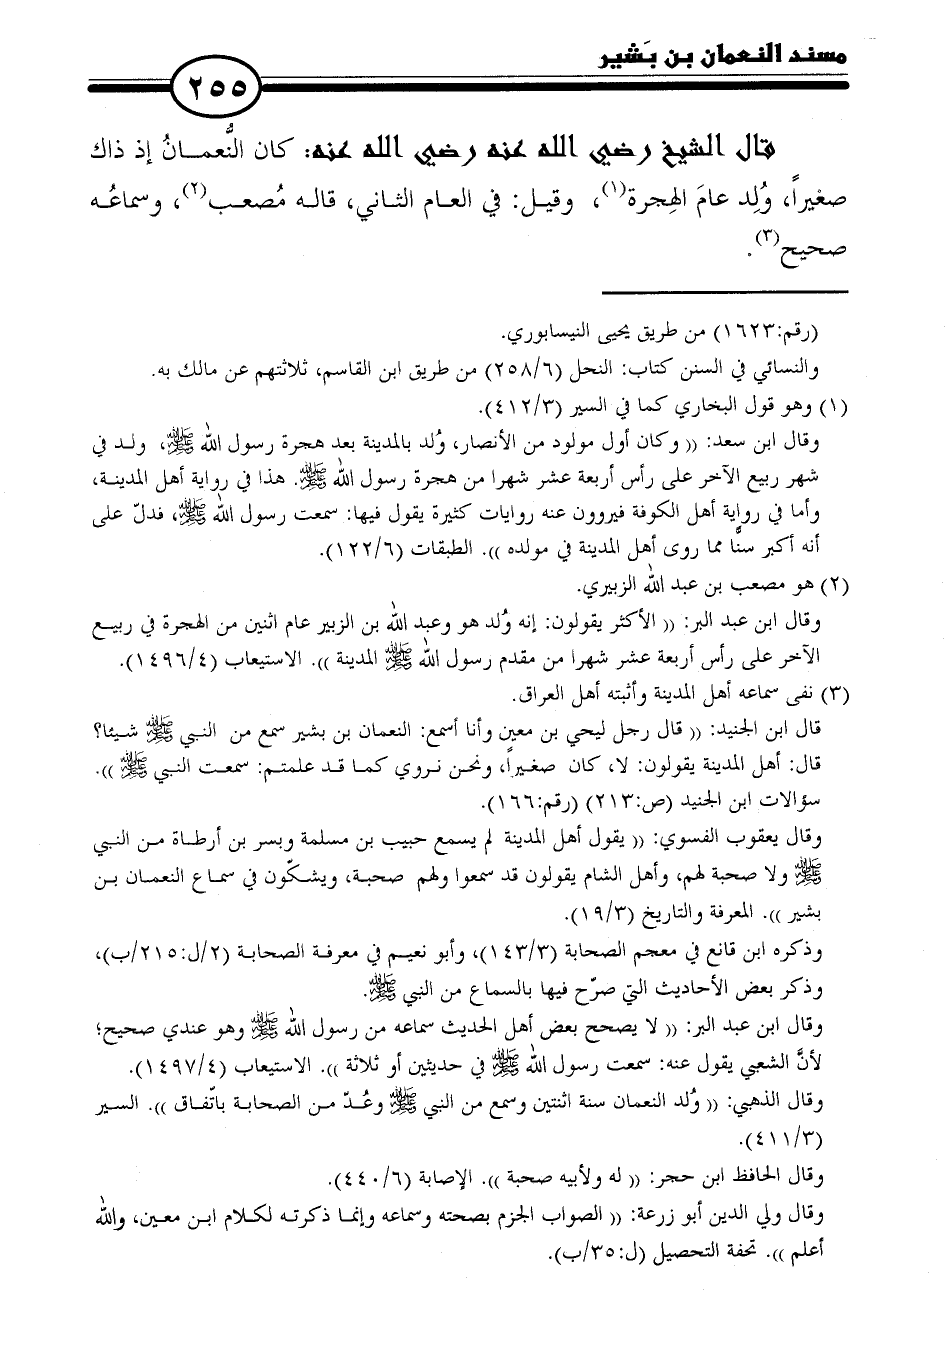 مسند النعمان بن بَشير
٢٥٥
قال الشيخ رضي الله عنه رضي الله عنه: كان النُّعمـانُ إذ ذاك
صغيراً، وُلِد عامَ الهِجرة(١)، وقيـل: في العـام الثـاني، قالـه مُصعـب(٢)، وسماعُـه
صحيح(٣).
(رقم:١٦٢٣) من طريق يحيى النيسابوري.
والنسائي في السنن كتاب: النحل (٢٥٨/٦) من طريق ابن القاسم، ثلاثتهم عن مالك به.
(١) وهو قول البخاري كما في السير (٤١٢/٣).
وقال ابن سعد: (( وكان أول مولود من الأنصار، وُلد بالمدينة بعد هجرة رسول الله ﷺ، ولـد في
شهر ربيع الآخر على رأس أربعة عشر شهرا من هجرة رسول الله ﷺ. هذا في رواية أهل المدينـة،
وأما في رواية أهل الكوفة فيروون عنه روايات كثيرة يقول فيها: سمعت رسول الله ﷺ، فدلّ على
أنه أكبر سنًّا مما روى أهل المدينة في مولده )). الطبقات (١٢٢/٦).
(٢) هو مصعب بن عبد الله الزبيري.
وقال ابن عبد البر: (( الأكثر يقولون: إنه وُلد هو وعبد الله بن الزبير عام اثنين من الهجرة في ربيـع
الآخر على رأس أربعة عشر شهرا من مقدم رسول الله ﷺ المدينة )). الاستيعاب (١٤٩٦/٤).
(٣) نفى سماعه أهل المدينة وأثبته أهل العراق.
قال ابن الجنيد: (( قال رجل ليحي بن معين وأنا أسمع: النعمان بن بشير سمع من النبي ﷺ شيئا؟
قال: أهل المدينة يقولون: لا، كان صغيراً، ونحـن نـروي كمـا قـد علمتـم: سمعـت النبي ﷺ )).
سؤالات ابن الجنيد (ص:٢١٣) (رقم:١٦٦).
وقال يعقوب الفسوي: (( يقول أهل المدينة لم يسمع حبيب بن مسلمة وبسر بن أرطـاة مـن النبي
ﷺ ولا صحبة لهم، وأهل الشام يقولون قد سمعوا ولهم صحبة، ويشكّون في سمـاع النعمـان بـن
بشير )). المعرفة والتاريخ (١٩/٣).
وذكره ابن قانع في معجم الصحابة (١٤٣/٣)، وأبو نعيـم في معرفـة الصحابـة (٢/ل:٢١٥/ب)،
وذكر بعض الأحاديث التي صرّح فيها بالسماع من النبي ﷺ.
وقال ابن عبد البر: (( لا يصحح بعض أهل الحديث سماعه من رسول الله ﷺ وهو عندي صحيح؛
لأنَّ الشعبي يقول عنه: سمعت رسول الله ﷺ في حديثين أو ثلاثة )). الاستيعاب (١٤٩٧/٤).
وقال الذهبي: (( وُلد النعمان سنة اثنتين وسمع من النبي ﷺ وعُـدّ مـن الصحابـة باتّفـاق )). السير
(٤١١/٣).
وقال الحافظ ابن حجر: (( له ولأبيه صحبة )). الإصابة (٤٤٠/٦).
وقال ولي الدين أبو زرعة: (( الصواب الجزم بصحته وسماعه وإنمـا ذكرتـه لكـلام ابـن معـين، والله
أعلم )). تحفة التحصيل (ل:٣٥/ب).